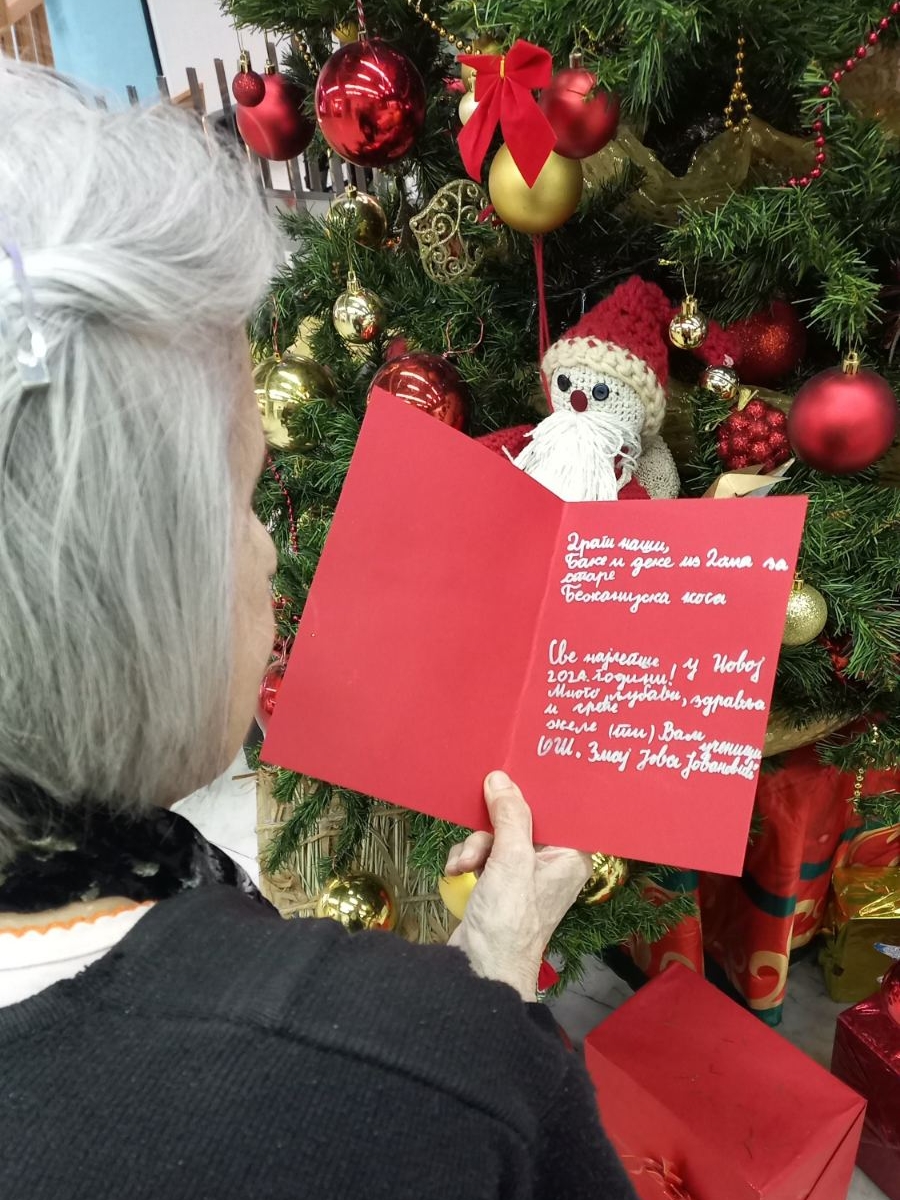 Драги наши,
Баке и деке из Дома за
старе
Бежанијска коса
Све најлепше у Новој
2024. години!
Много љубави, здравља
и среће
желе (ти) Вам
ученици
ОШ. Змај Јова Јовановић